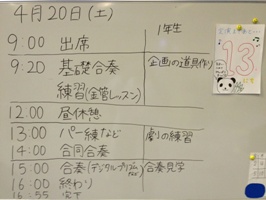 4月20日(土)
1年生
9:00 出席
9:20 基礎合奏
企画の道具作り
練習(金管レッスン)
12:00 昼休憩
13:00 パー練など
劇の練習
14:00 合同合奏
15:00 合奏(デジタルプリズム
など)
合奏見学
16:00 終わり
16:55 完下
13